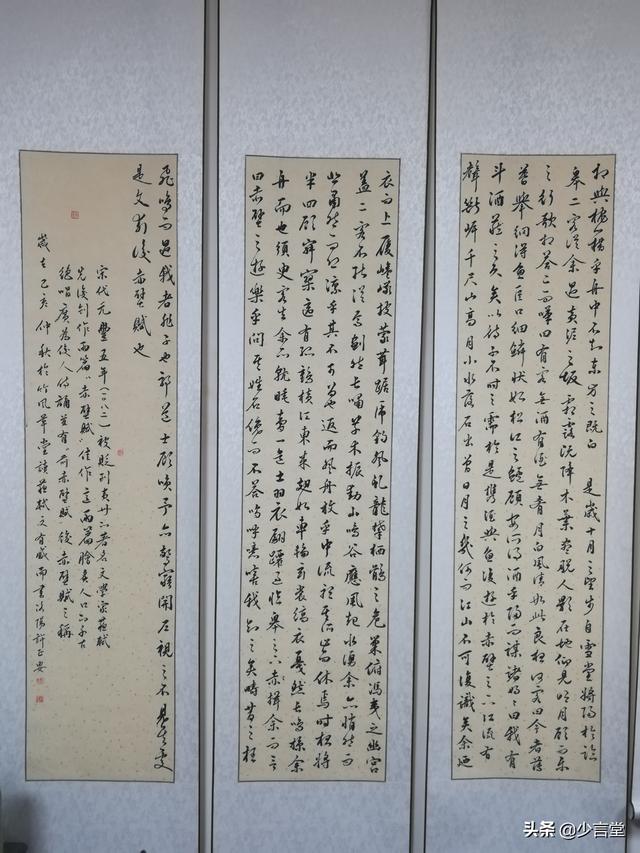 相與枕藉乎舟中不知東方之既白 是歲十月之望步自雪堂將歸於臨
皋二客從余過黃泥之坂霜露既降木葉盡脫人影在地仰見明月顧而樂
之行歌相答已而嘆曰有客無酒有酒無肴月白風清如此良夜何客曰今者薄
暮舉網得魚巨口細鱗狀如松江之鱸顧安所得酒乎歸而謀諸婦婦曰我有
斗酒藏之久矣以待子不時之需於是攜酒與魚復遊於赤壁之下江流有
聲斷岸千尺山高月小水落石出曾日月之幾何而江山不可復識矣余
衣而上履巉巖披蒙茸踞虎豹登虬龍攀栖鶻之危巢俯馮夷之幽宮
蓋二客不能從焉劃然長嘯草木振動山鳴谷應風起水湧余亦悄然而
悲肅然而恐凜乎其不可留也返而登舟放乎中流聽其所止而休焉時夜將
半四顧寂寥適有孤鶴橫江東來翅如車輪玄裳縞衣戛然長鳴掠余
舟而西也須臾客去余亦就睡夢一道士羽衣翩躚過臨皋之下揖余而言
曰赤壁之遊樂乎問其姓名俛而不答嗚呼噫嘻我知之矣疇昔之夜
飛鳴而過我者非子也耶道士顧笑予亦驚寤開戶視之不見其處
是文前後赤壁賦也
宋代元豐五年(一〇八二)被貶到黃州的著名文學家蘇軾
先後創作兩篇"赤壁賦"佳作這兩篇膾炙人口的千古
絕唱廣為後人傳誦並有"前赤壁賦""後赤壁賦"之稱
歲在己亥仲秋於竹風草堂讀蘇軾文有感而書洛陽許正安
头条 @少言堂